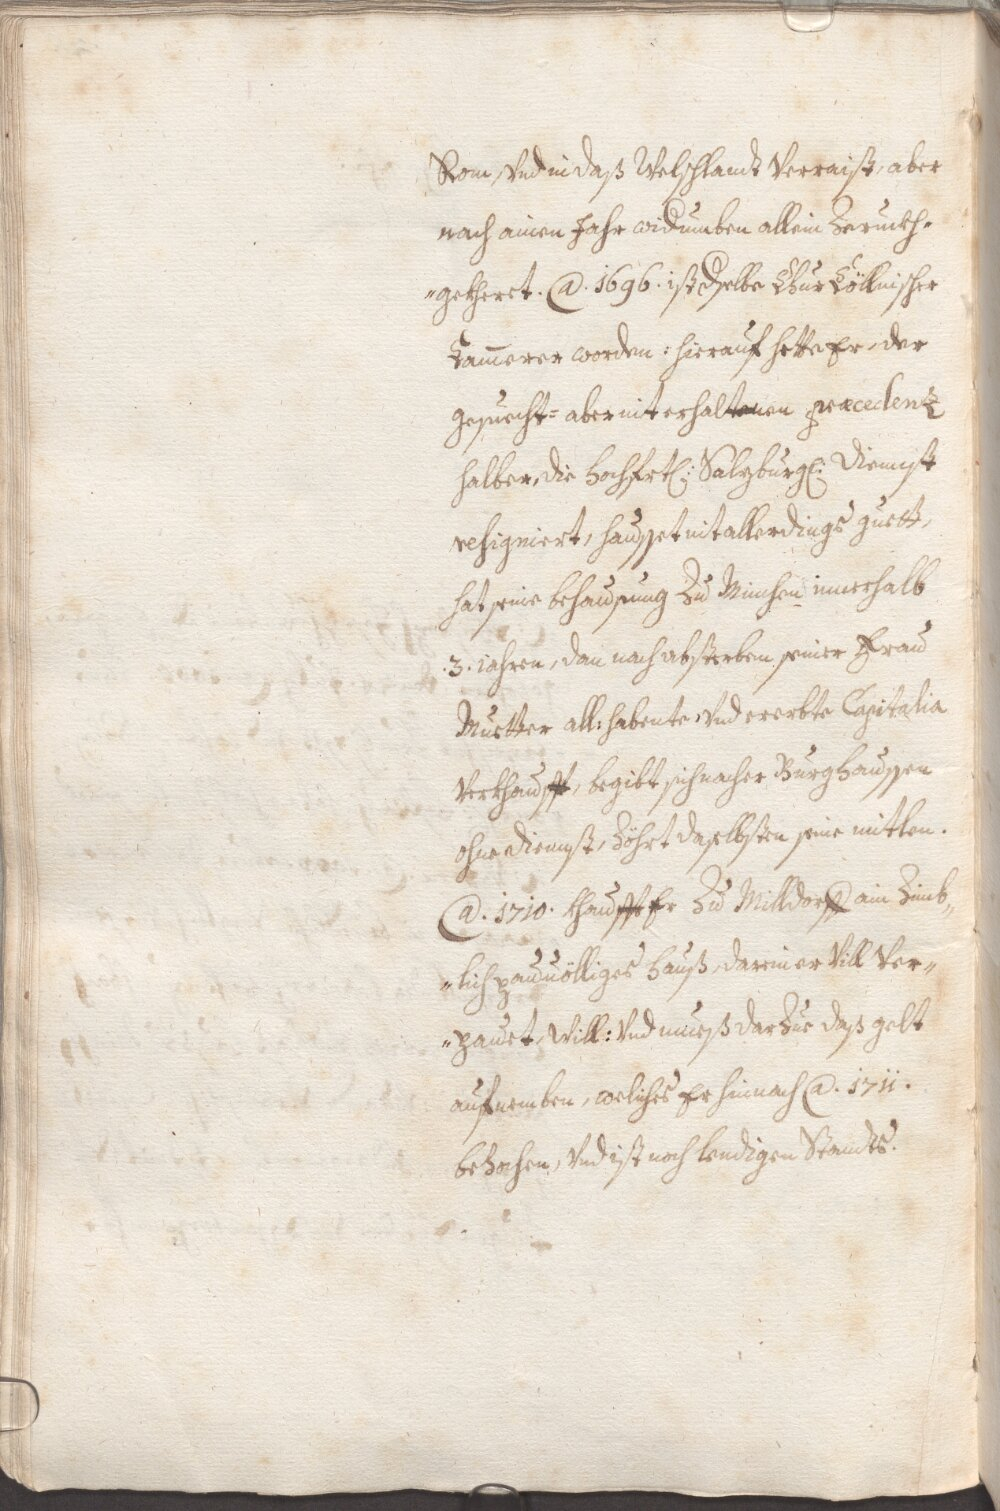 Rom, Vnd in daß Welschlandt Verraist, aber
nach ainen Jahr widumben allein Zeruckh-
-gekheret. @. 1696. ist dselbe Chur Cöllnischer
Camerer worden: hierauf hette Er, der
gesuecht= aber nit erhaltenen præcedentz
halber, die hochfrtl: Salzburg: Diennst
resigniert, hausset nit allerdings guett,
hat seine behausung Zu Minchen innerhalb
.3. iahren, dan nach absterben seiner Frau
Muetter all: habente Vnd ererbte Capitalia
Verkhaufft, begibt sich nacher Burghaussen
ohne dienngst, Zöhrt daselbsten seine mitlen.
@. 1710. khaufft Er Zu Milldorff ain Zimb-
-lich pauuölliges hauß, darein er Vill Ver-
-pauet, Will: Vnd mueß darZue daß gelt
aufnemben, weliches Er hinnach @. 1711.
beZochen, Vnd ist noch lendigen Standts.